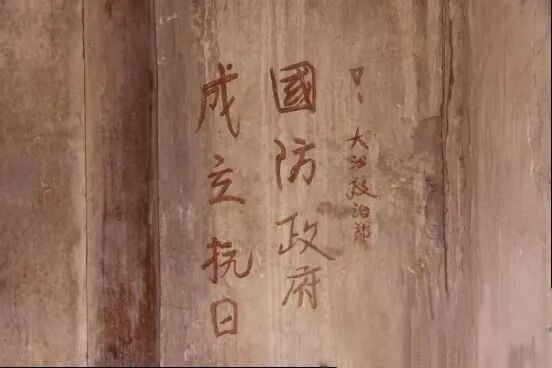 成立抗日
國防政府
！大政治部